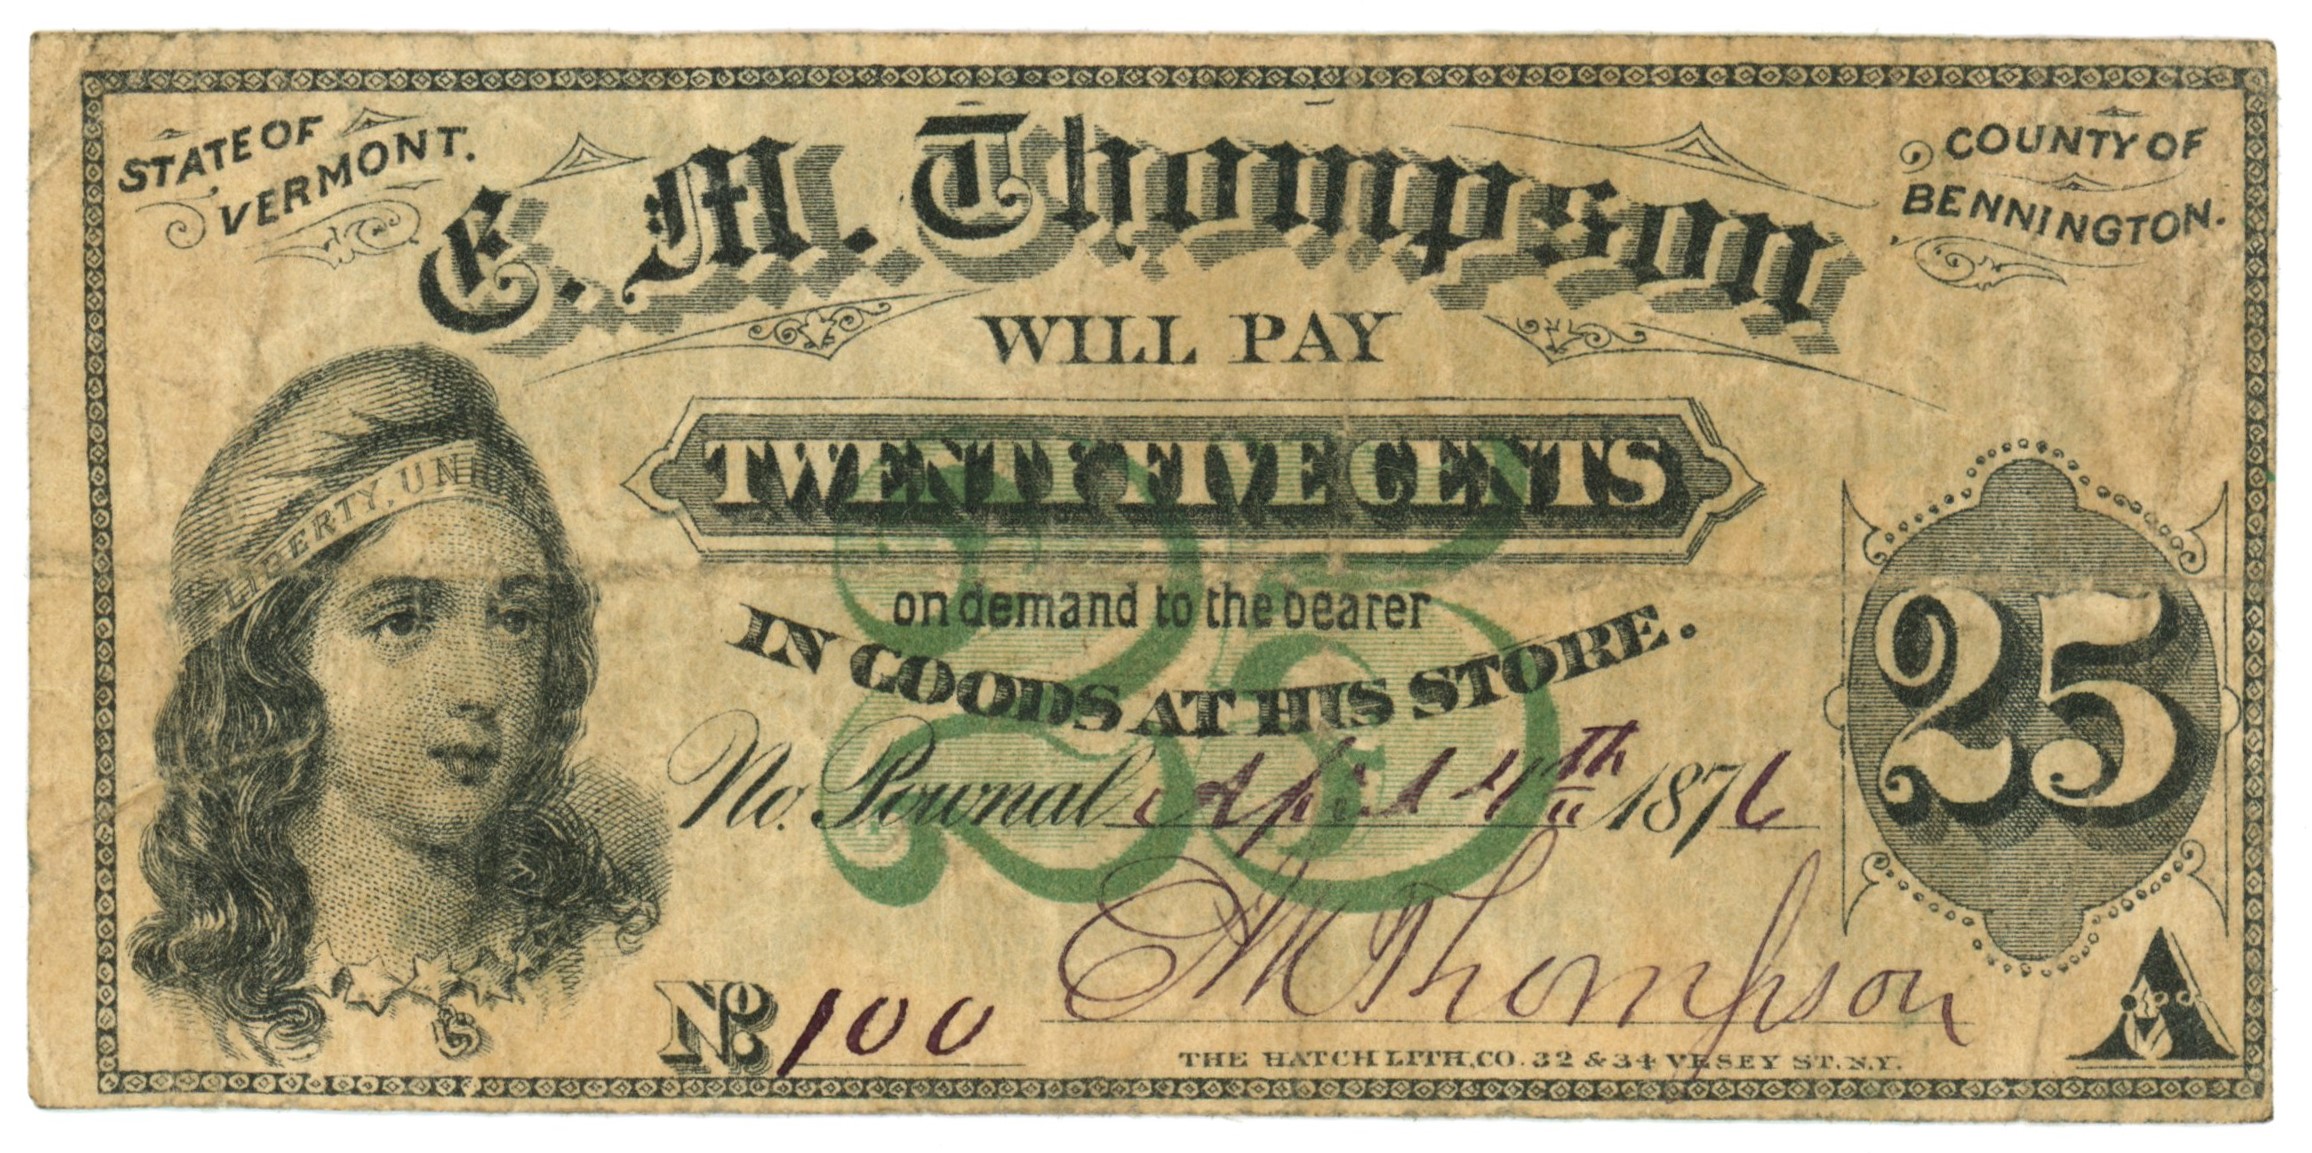 STATE OF
VERMONT.
COUNTY OF
BENNINGTON.
E. M. Thompson
WILL PAY
TWENTY FIVE CENTS
on demand to the bearer
IN GOODS AT HIS STORE.
No. Pownal April 4th 1876
LIBERTY, UNION
25
25
EM Thompson
No 100
THE HATCH LITH, CO. 32 & 34 VESEY ST. N.Y.
A